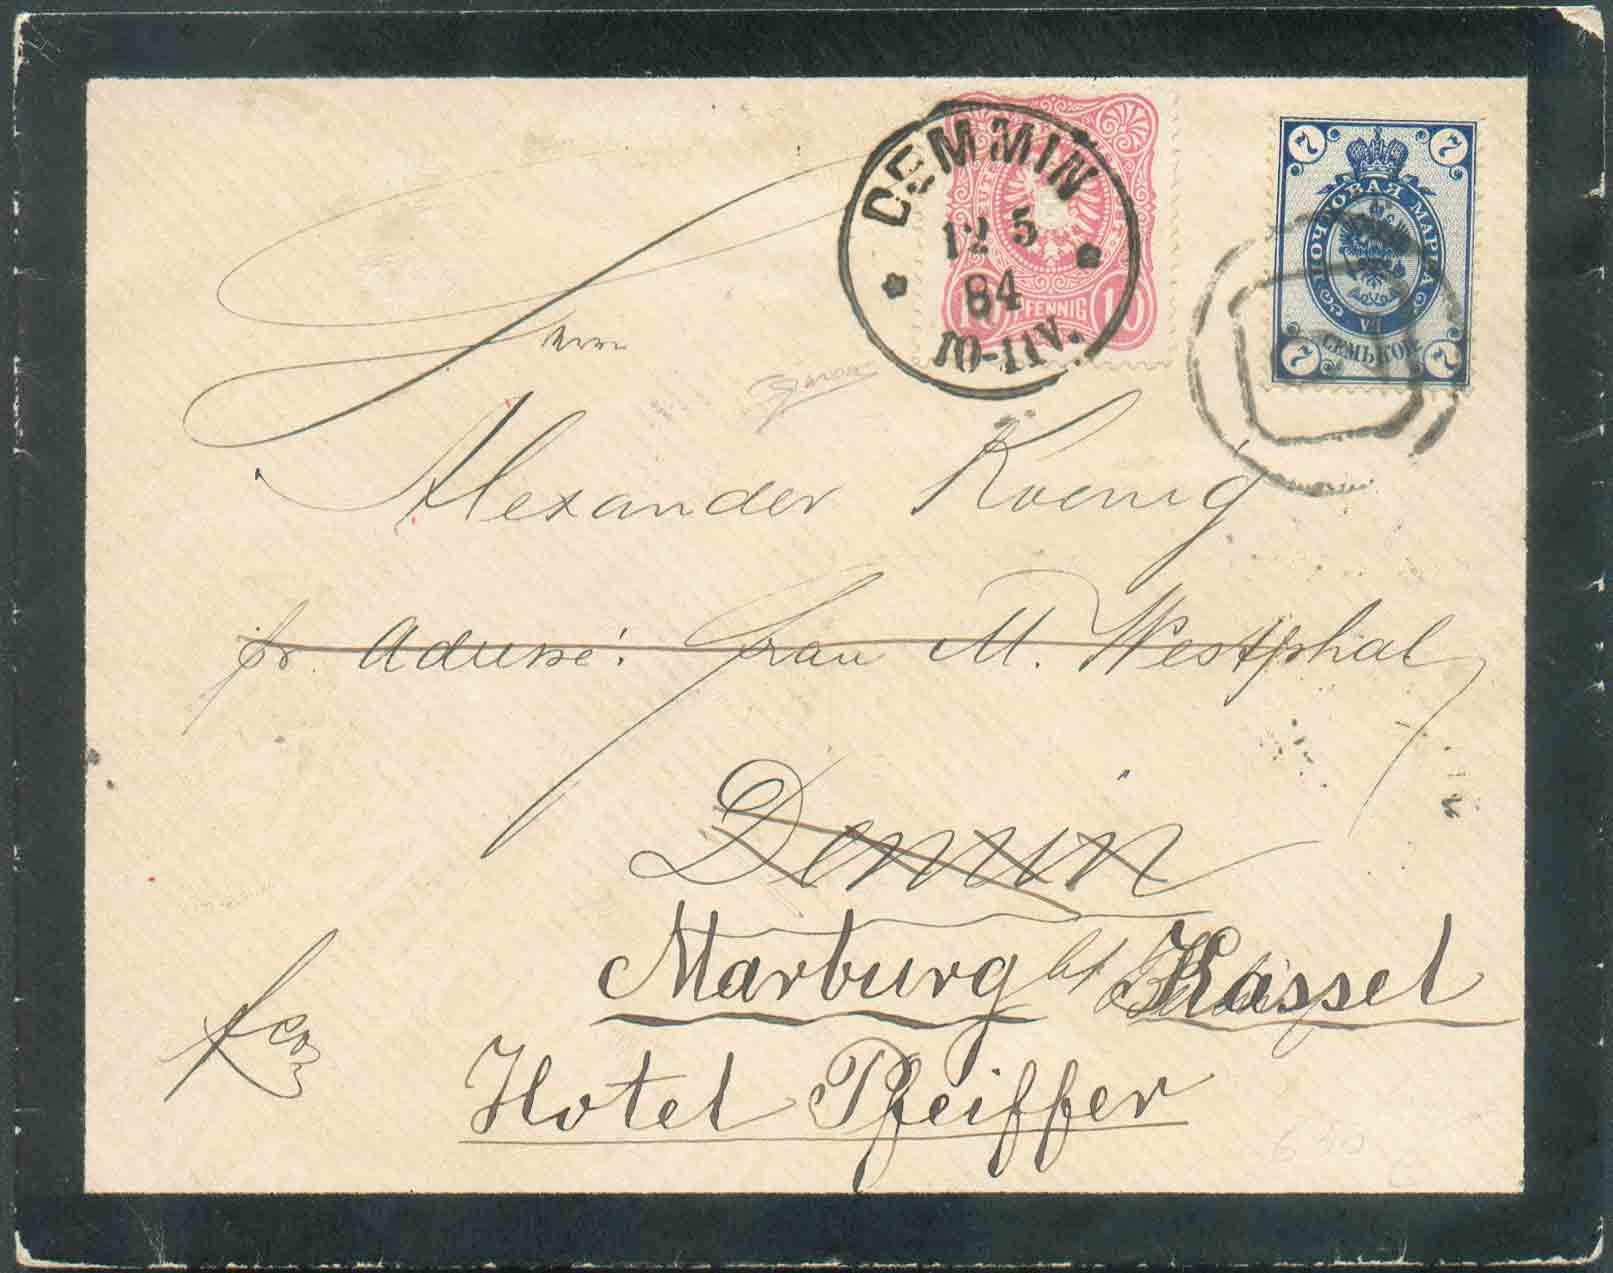 DEMMIN
12 5
84
10-11V.
10 PFENNIG 10
7 7
ПОЧТОВАЯ МАРКА
СЕМЬ КОП.
7 7
Herrn
Alexander Koenig
pr. Adresse: Frau M. Westphal
Demmin
Marburg bei Kassel
Hotel Pfeiffer